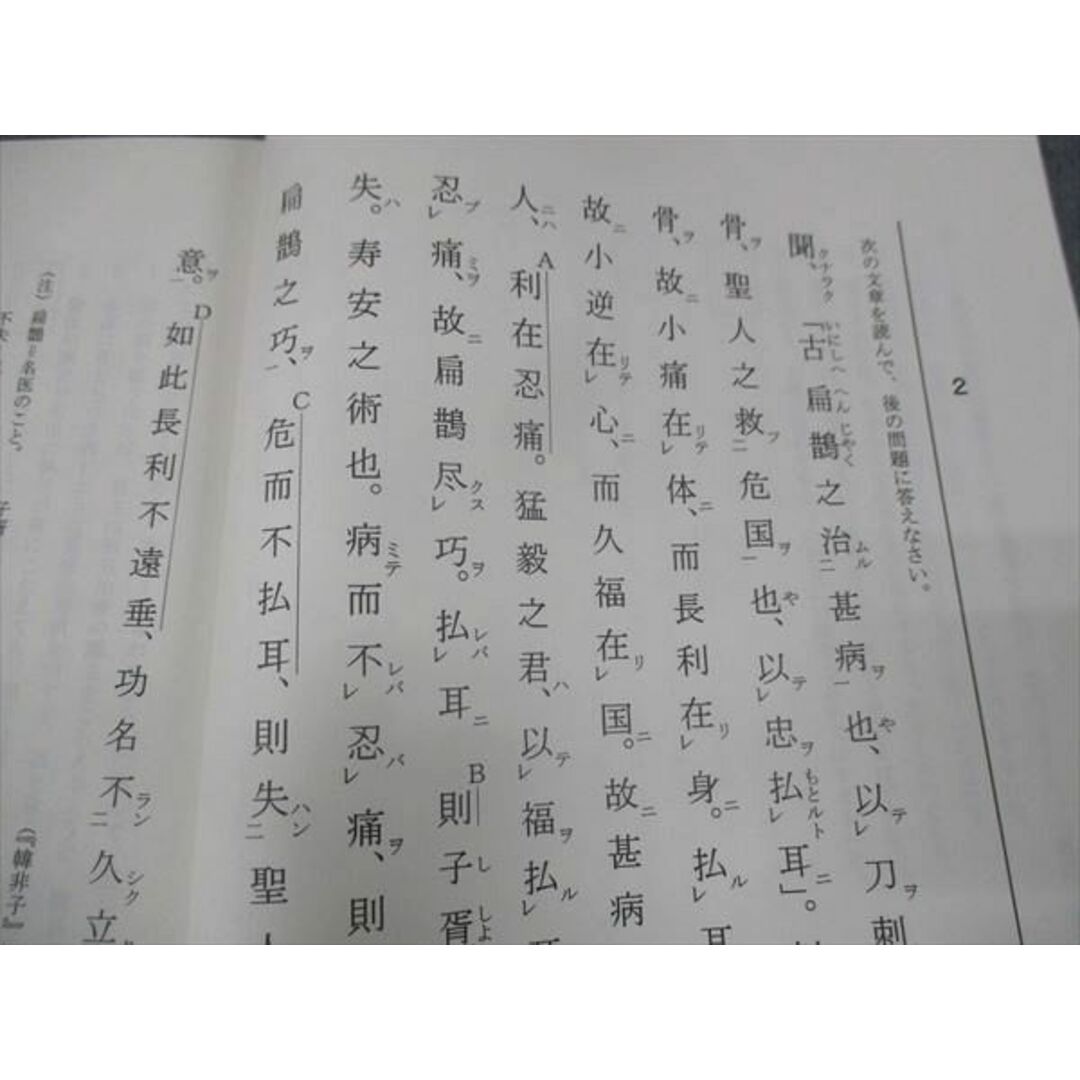 2
次の文章を読んで、後の問題に答えなさい。
聞、「古扁鵲之治甚病也、以刀刺
骨、聖人之救危国也、以忠払耳」。
骨、故小痛在体、而長利在身。払
故小逆在心、而久福在国。故甚病
人、利在忍痛。猛毅之君、以福払
忍痛、故扁鵲尽巧。払耳則子胥
失。寿安之術也。病而不忍痛、則
扁鵲之巧、危而不払耳、則失聖
意。如此長利不遠垂、功名不久立
(注) 扁鵲=名医のこと。
(『韓非子』